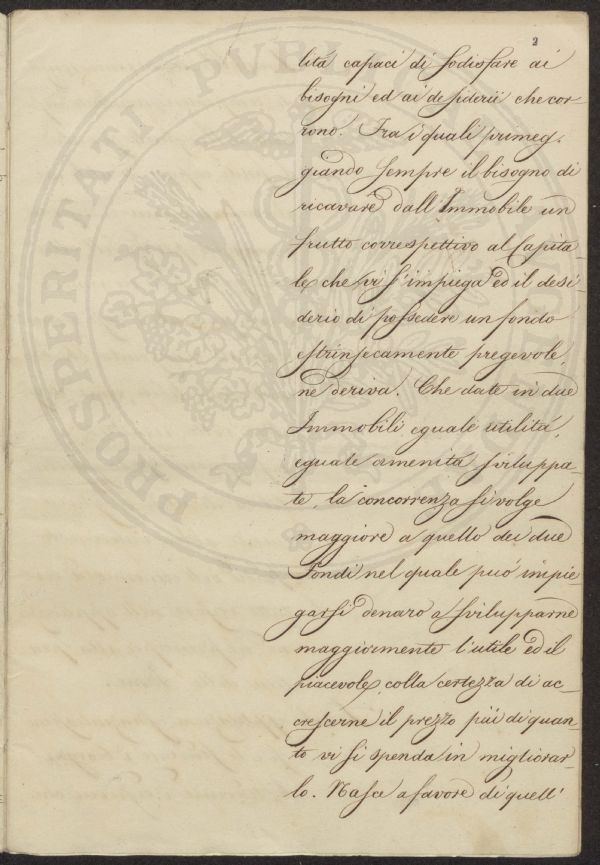 2
lità capaci di sodisfare ai
bisogni ed ai desiderii che cor-
rono. Fra i quali primeg-
giando sempre il bisogno di
ricavare dall'Immobile un
frutto correspettivo al Capita-
le che vi s'impiega ed il desi-
derio di possedere un fondo
estrinsecamente pregevole,
ne deriva. Che date in due
Immobili eguale utilità,
eguale amenità sviluppa-
te, la concorrenza si volge
maggiore a quello dei due
Fondi nel quale può impie-
garsi denaro a svilupparne
maggiormente l'utile ed il
piacevole, colla certezza di ac-
crescerne il prezzo più di quan-
to vi si spenda in migliorar-
lo. Nasce a favore di quell'
PROSPERITATI PVBLICAE